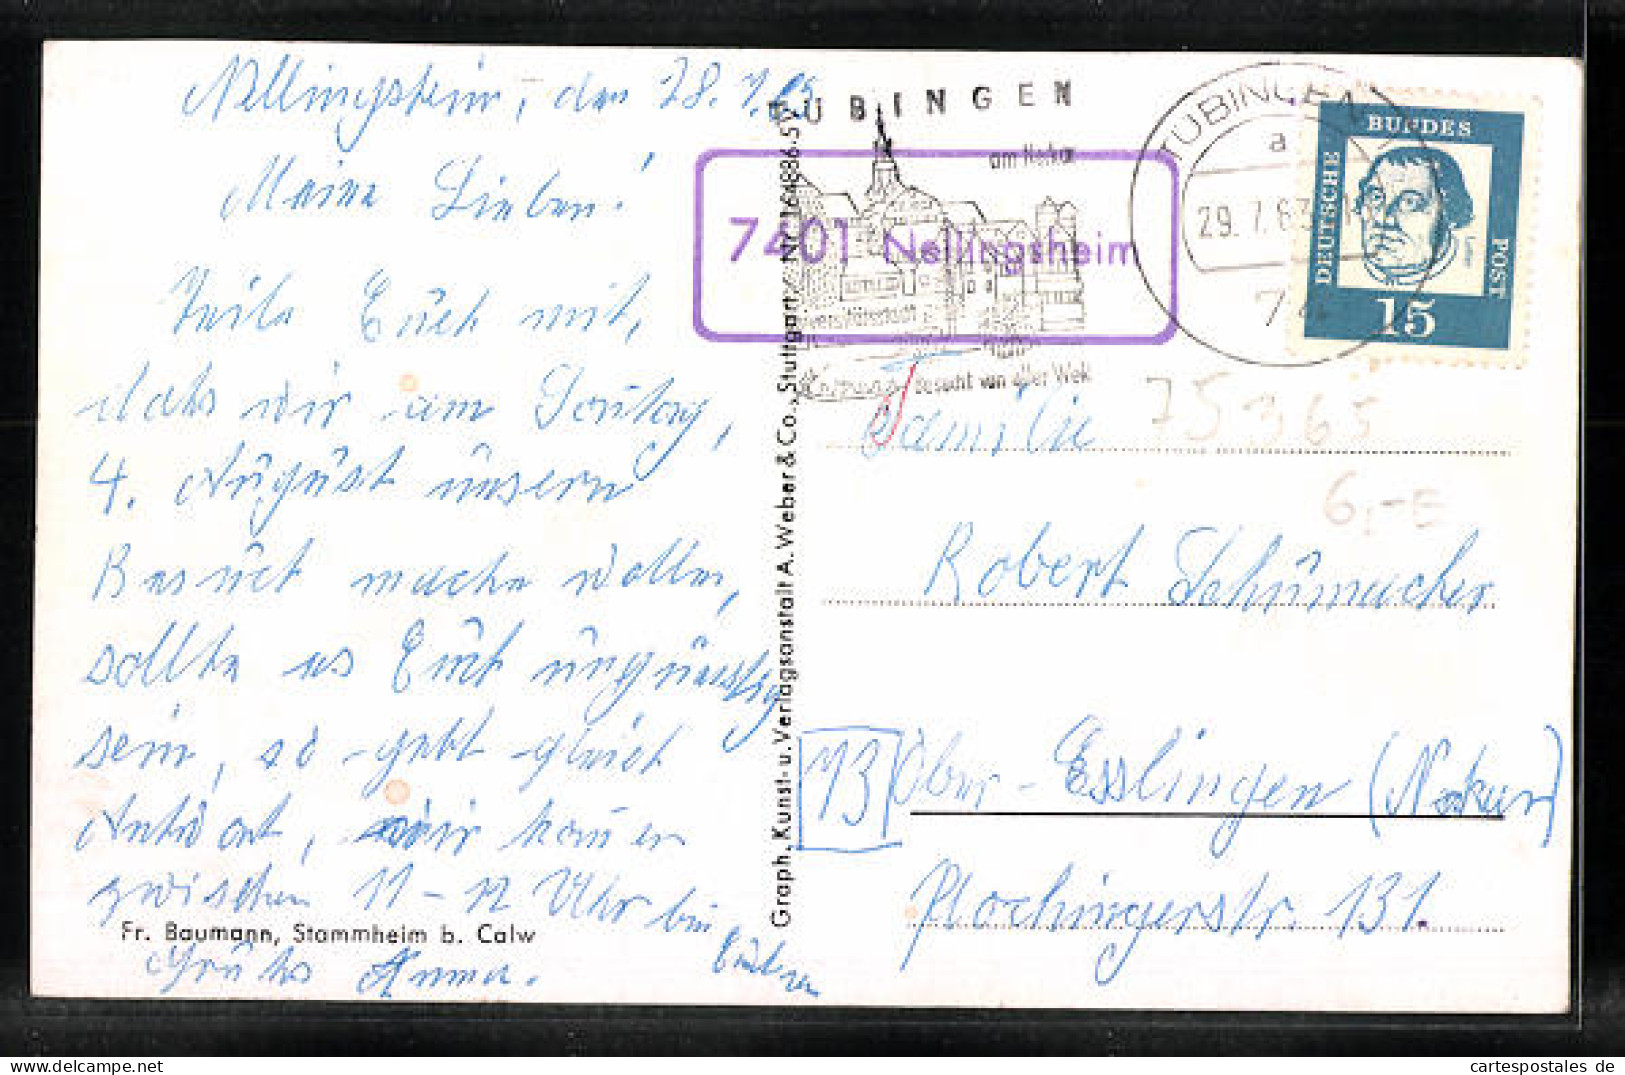 Nellingsheim, den 28. 7. 63
Meine Lieben!
Teile Euch mit,
dahs wir am Sontag,
4. August unsern
Besuch mache wollen,
sollte es Euch ungünstig
sein, so gebt gleich
Antwort, wir komen
zwischen 11 - 12 Uhr bei
Grühse Anna.
Fr. Baumann, Stammheim b. Calw
Graph. Kunst- u. Verlagsanstalt A. Weber & Co., Stuttgart / Nr. 164886-5
TÜBINGEN
am Neckar
Universitätsstadt
besucht von aller Welt
7401 Nellingsheim
TÜBINGEN
a
29. 7. 63
74
DEUTSCHE
BUNDES
POST
15
75365
6,-E
Familie
Robert Schumacher
13 Ober-Esslingen (Neckar)
Plochingerstr. 131.
cartespostales de